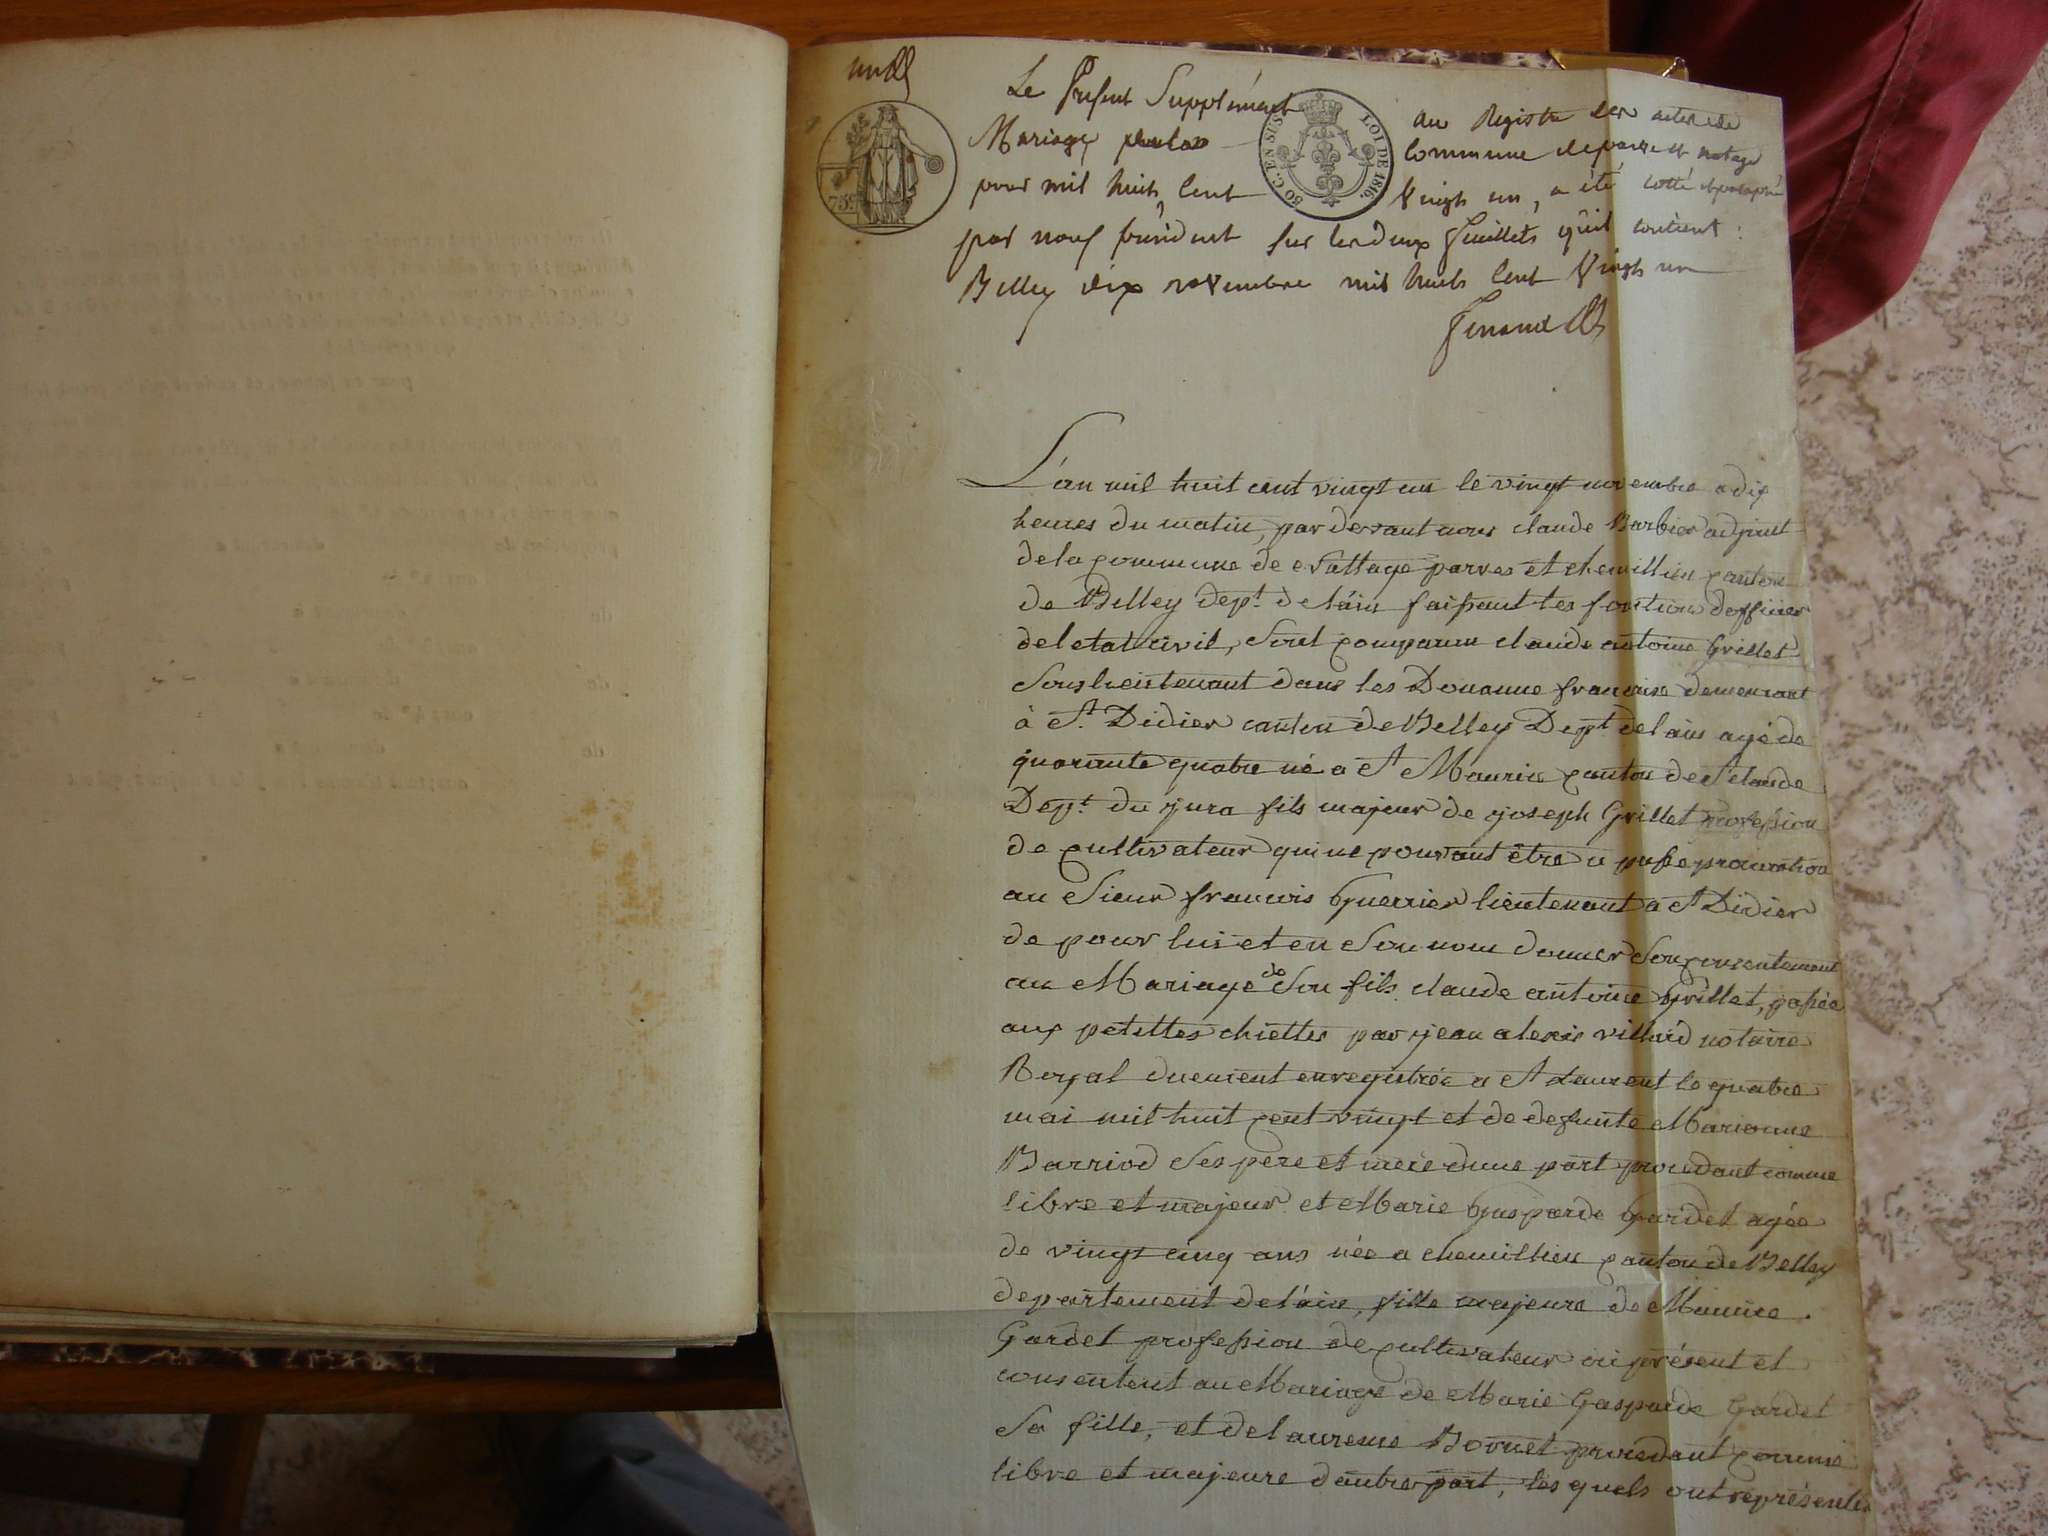 Le présent Supplément au Registre des actes de
Mariage pour la commune de parves et natage
pour mil huit cent vingt un, a été cotté et paraphé
par nous président sur les deux feuillets qu'il contient :
Belley dix novembre mil huit cent vingt un
75c
80 C. EN SUS
LOI DE 1816.
L'an mil huit cent vingt un le vingt novembre a dix
heures du matin, par devant nous claude Barbier adjoint
de la commune de Nattage parves et chemillieu canton
de Belley dept. de l'ain faisant les fontions d'officier
de l'etat civil, Sont comparu claude antoine Grillet
Souslieutenant dans les Douanne francaise demeurant
à St. Didier canton de Belley Dept. de l'ain agé de
quarante quatre né a St Maurice canton de St claude
Dept. du jura fils majeur de joseph Grillet profession
de cultivateur qui ne pouvant être a passé procuration
au Sieur francois Guerrier lieutenant a St Didier
de pour lui et en Son nom donner Son consentement
au Mariage de Son fils claude antoine Grillet, passée
aux petittes chiettes par jean alexis villard notaire
Royal duement enregistrée a St Laurent le quatre
mai mil huit cent vingt et de defunte Marianne
Barriod Ses père et mere d'une part procedant comme
libre et majeur et Marie Gasparde Gardet agée
de vingt cinq ans née a chemillieu canton de Belley
departement de l'ain, fille majeure de Maurice
Gardet profession de cultivateur ici présent et
consentent au Mariage de Marie Gasparde Gardet
Sa fille, et de laurence Bornet procedant comme
libre et majeure d'autre part, les quels ont représentés